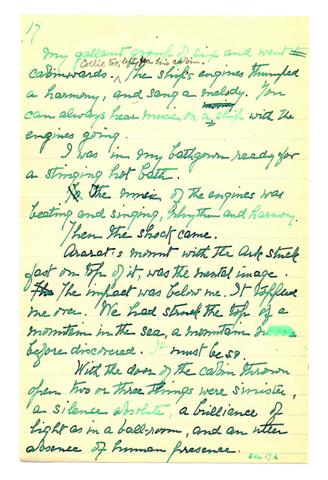 17
my gallant group of six and went
Collie too, left for his cabin.
cabinwards. ^ The ship's engines thumped
a harmony, and sang a melody. You
can always hear music on a ship with the
engines going.
I was in my bathgown ready for
a stinging hot bath.
The music of the engines was
beating and singing, rhythm and harmony.
Then the shock came.
Ararat's mount with the Ark stuck
fast on top of it, was the mental image.
The The impact was below me. It toppled
me over. We had struck the top of a
mountain in the sea, a mountain
before discovered. It must be so.
With the door of the cabin thrown
open two or three things were sinister,
a silence absolute, a brilliance of
light as in a ball-room, and an utter
absence of human presence.
see 17A